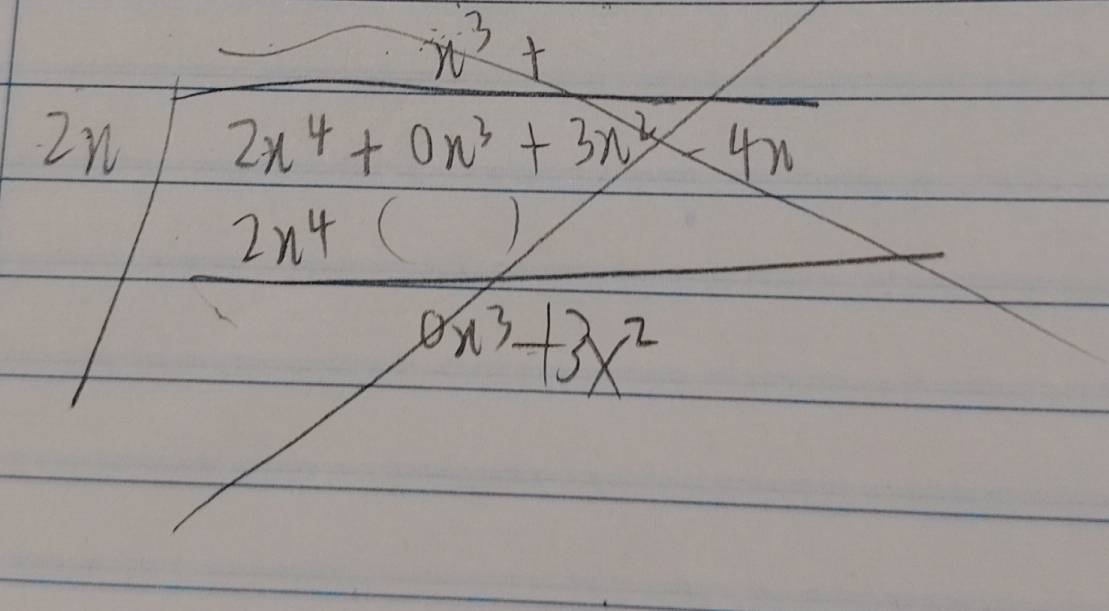 x³ +
2x 2x⁴ + 0x³ + 3x² - 4x
2x⁴ ( )
0x³ + 3x²